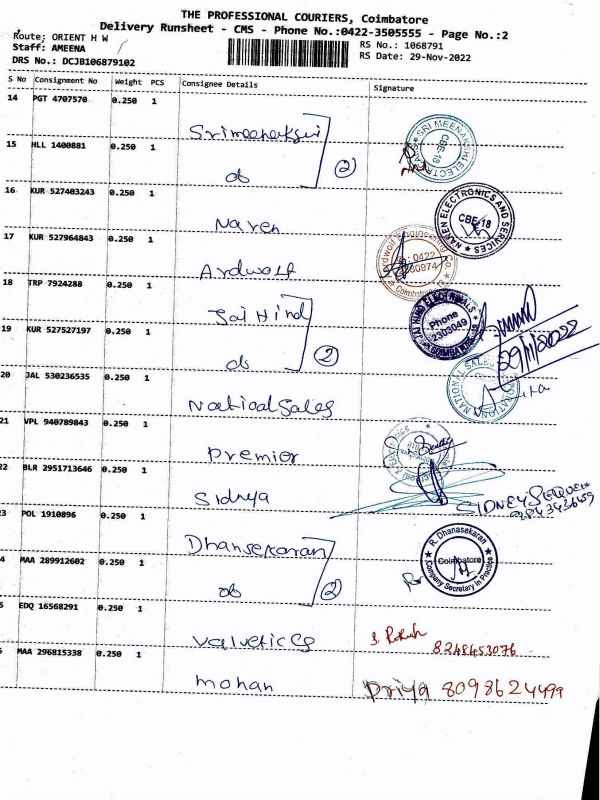 THE PROFESSIONAL COURIERS, Coimbatore
Delivery Runsheet - CMS - Phone No.:0422-3505555 - Page No.:2
Route: ORIENT H W
Staff: AMEENA
DRS No.: DCJB106879102
RS No.: 1068791
RS Date: 29-Nov-2022
S No Consignment No Weight PCS Consignee Details Signature
14 PGT 4707570 0.250 1
Srimeenakshi
SRI MEENAKSHI ELECTR CBE-18
15 HLL 1400881 0.250 1
do 2
16 KUR 527403243 0.250 1
Naren
NAREN ELECTRONICS AND SERVICES CBE-18
17 KUR 527964843 0.250 1
Ardwolf
0422
18 TRP 7924288 0.250 1
Jai Hind
JAI HIND ELECTRICALS Phone 2303049
29/11/2022
19 KUR 527527197 0.250 1
do 2
20 JAL 530236535 0.250 1
National Sales
NATIONAL SALES
21 VPL 940789843 0.250 1
Premier
22 BLR 2951713646 0.250 1
Sidnya
23 POL 1910896 0.250 1
Dhansekaran
R. Dhanasekaran Coimbatore Company Secretary in Practice
4 MAA 289912602 0.250 1
do 2
5 EDQ 16568291 0.250 1
Valvetics
8248453076
MAA 296815338 0.250 1
mohan
Priya 8098624499